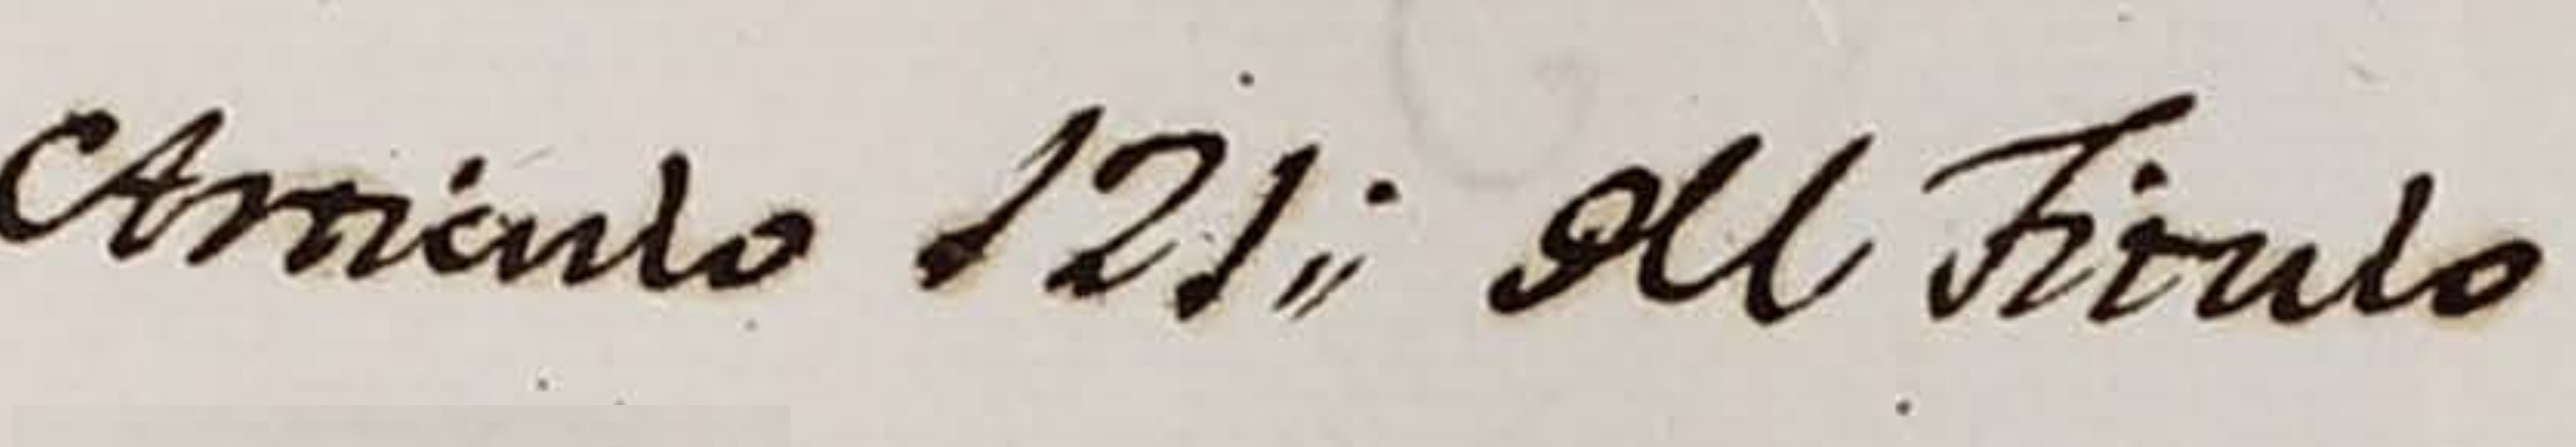 Articulo 121,, del Titulo